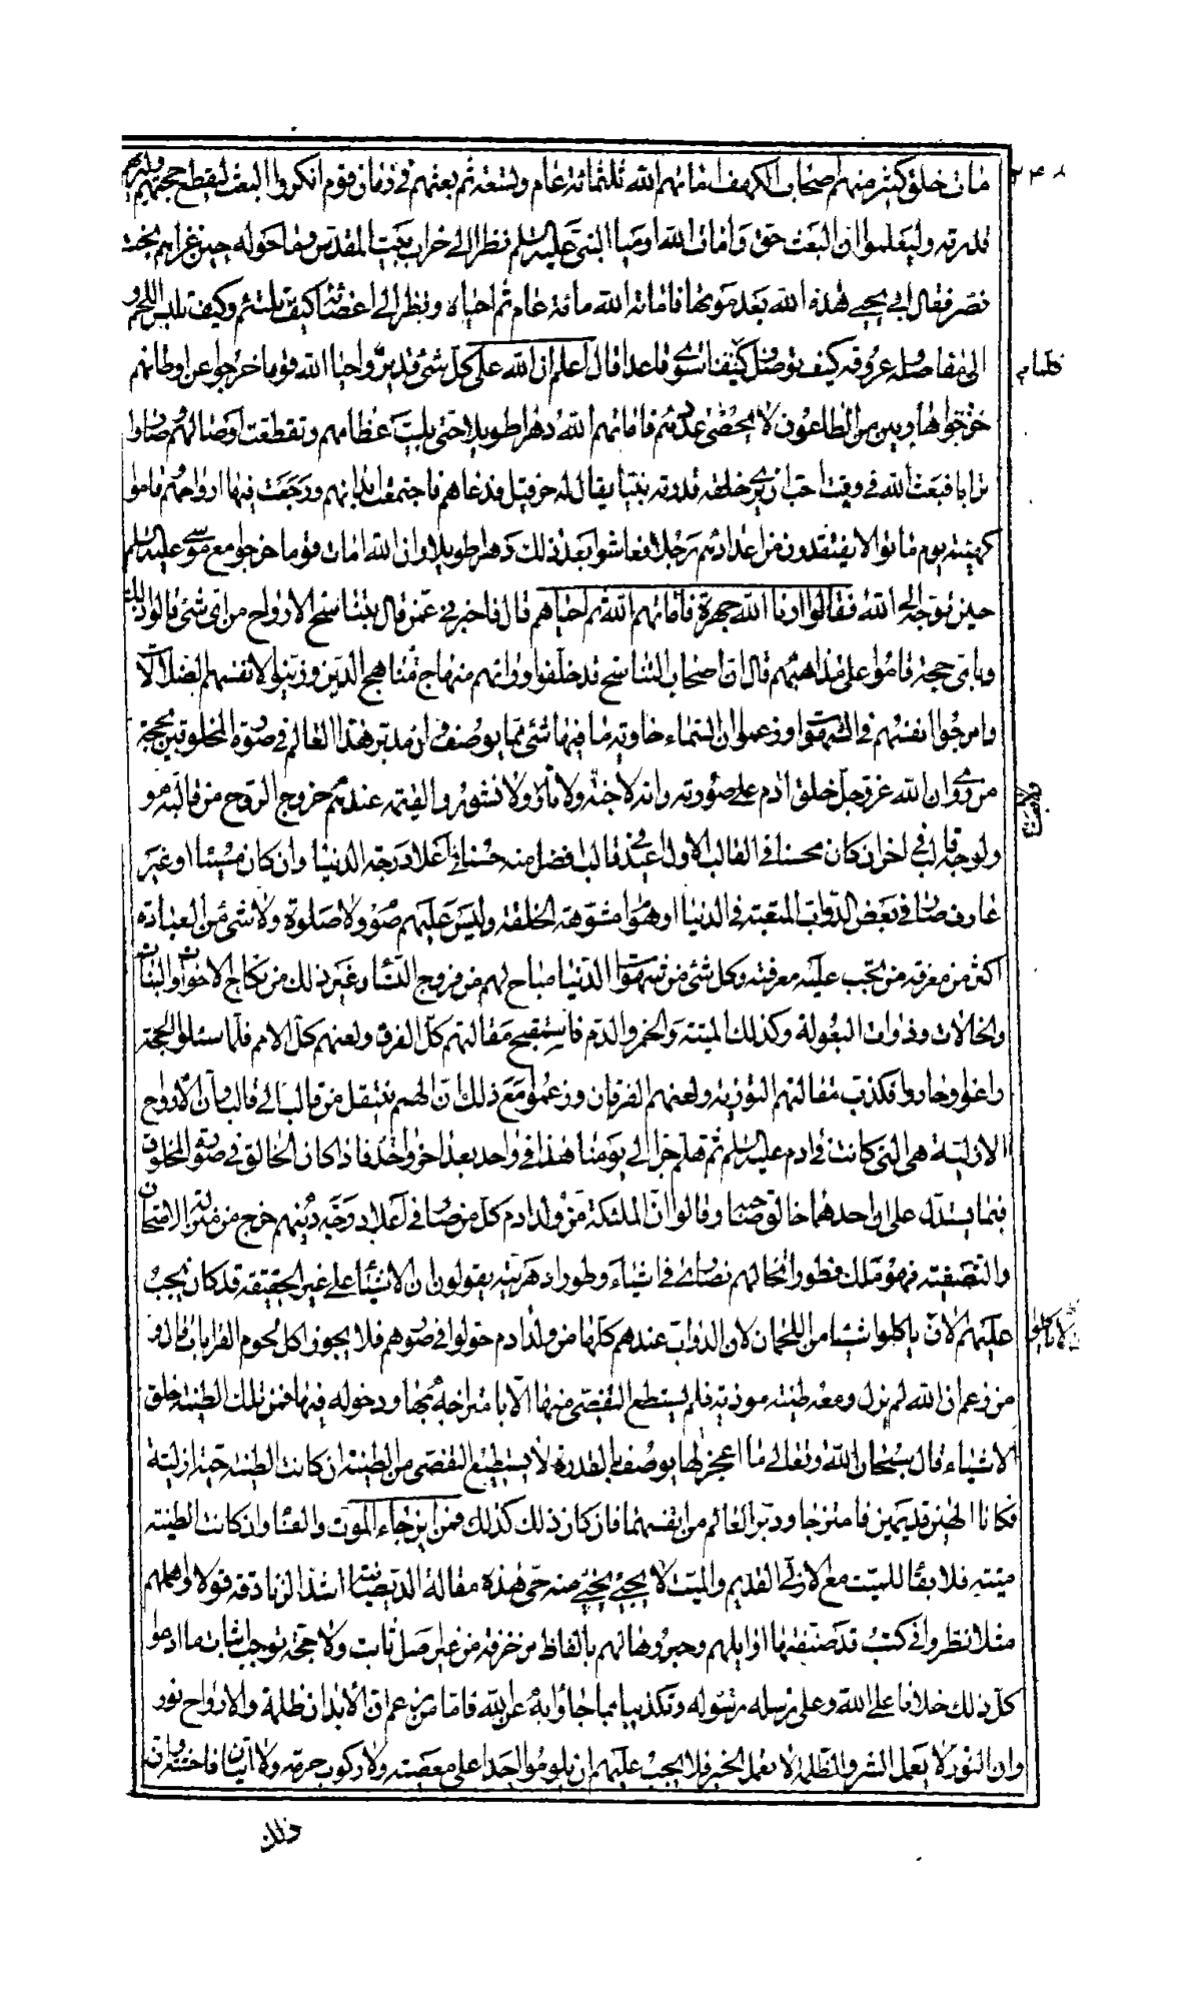 ٢٤٨
مات خلق كثير منهم اصحاب الكهف اماتهم الله ثلثمائة عام وتسعة ثم بعثهم في زمان قوم انكروا البعث ليقطع حجتهم وليريهم
قدرته وليعلموا ان البعث حق وامات الله ارميا النبي عليه السلم نظر الى خراب بيت المقدس وما حوله حين غزاهم بخت
نصر فقال انى يحيي هذه الله بعد موتها فاماته الله مائة عام ثم احياه ونظر الى اعضائه كيف تلتئم وكيف تلبس اللحم و
الى مفاصله وعروقه كيف توصل فلما استوى قاعدا قال اعلم ان الله على كل شئ قدير واحيا الله قوما خرجوا عن اوطانهم
هاربين من الطاعون لا يحصى عددهم فاماتهم الله دهرا طويلا حتى بليت عظامهم وتقطعت اوصالهم وصاروا
ترابا فبعث الله في وقت احب ان يرى خلقه قدرته نبيا يقال له حزقيل فدعاهم فاجتمعت ابدانهم ورجعت فيها ارواحهم قاموا
كهيئة يوم ماتوا لا يفتقدون من اعدادهم رجلا فعاشوا بعد ذلك دهرا طويلا وان الله امات قوما خرجوا مع موسى عليه السلم
حين توجه الى الله فقالوا ارنا الله جهرة فاماتهم الله ثم احياهم قال فاخبرني عمن قال بتناسخ الارواح من اي شئ قالوا ذلك
وباي حجة قاموا على مذاهبهم قال ان اصحاب التناسخ قد خلفوا ورائهم منهاج الدين وزينوا لانفسهم الضلالات
وامرجوا انفسهم في الشهوات وزعموا ان السماء خاوية ما فيها شئ مما يوصف وان مدبر هذا العالم في صورة المخلوقين بحجة
من روى ان الله عز وجل خلق ادم على صورته وانه لا جنة ولا نار ولا نشور والقيمة عندهم خروج الروح من قالبه و
ولوجه في قالب اخر ان كان محسنا في القالب الاول اعيد في قالب افضل منه حسنا في اعلا درجة الدنيا وان كان مسيئا او غير
عارف صار في بعض الدواب المتعبة في الدنيا او هوام مشوهة الخلقة وليس عليهم صوم ولا صلوة ولا شئ من العبادة
اكثر من معرفة من تجب عليه معرفته وكل شئ من شهوات الدنيا مباح لهم من فروج النساء وغير ذلك من نكاح الاخوات والبنات
والخالات وذوات البعولة وكذلك الميتة والخمر والدم فاستقبح مقالتهم كل الفرق ولعنهم كل الامم فلما سئلوا الحجة
زاغوا وحاروا فكذب مقالتهم التورية ولعنهم الفرقان وزعموا مع ذلك ان الههم ينتقل من قالب الى قالب وان الارواح
الازلية هي التي كانت في ادم عليه السلم ثم هلم جرا الى يومنا هذا في واحد بعد اخر فاذا كان الخالق في صورة المخلوق
فبما يستدل على ان احدهما خالق صاحبه وقالوا ان الملئكة من ولد ادم كل من صار في اعلا درجة دينهم خرج من منزلة الامتحان
والتصفية فهو ملك فطورا تخالهم نصارى في اشياء وطورا دهرية يقولون ان الاشياء على غير الحقيقة قد كان يجب
عليهم ان لا ياكلوا شيئا من اللحمان لان الدواب عندهم كلها من ولد ادم حولوا في صورهم فلا يجوز اكل لحوم القرابات قال و
من زعم ان الله لم يزل ومعه طينة موذية فلم يستطع التفصي منها الا بامتزاجه بها ودخوله فيها فمن تلك الطينة خلق
الاشياء قال سبحان الله وتعالى ما اعجز الها يوصف بالقدرة لا يستطيع التفصي من الطينة ان كانت الطينة حية ازلية
فكانا الهين قديمين فامتزجا ودبرا العالم من انفسهما فان كان ذلك كذلك فمن اين جاء الموت والفناء وان كانت الطينة
ميتة فلا بقاء للميت مع الازلي القديم والميت لا يجئ منه حي هذه مقالة الديصانية اشد الزنادقة قولا واهملهم
مثلا نظروا في كتب قد صنفتها اوايلهم وحبروها لهم بالفاظ مزخرفة من غير اصل ثابت ولا حجة توجب اثبات ما ادعوا
كل ذلك خلافا على الله وعلى رسله وتكذيبا بما جاؤا به عن الله فاما من زعم ان الابدان ظلمة والارواح نور
وان النور لا يعمل الشر والظلمة لا تعمل الخير فلا يجب عليهم ان يلوموا احدا على معصية ولا ركوب حرمة ولا اتيان فاحشة وان
ذلك